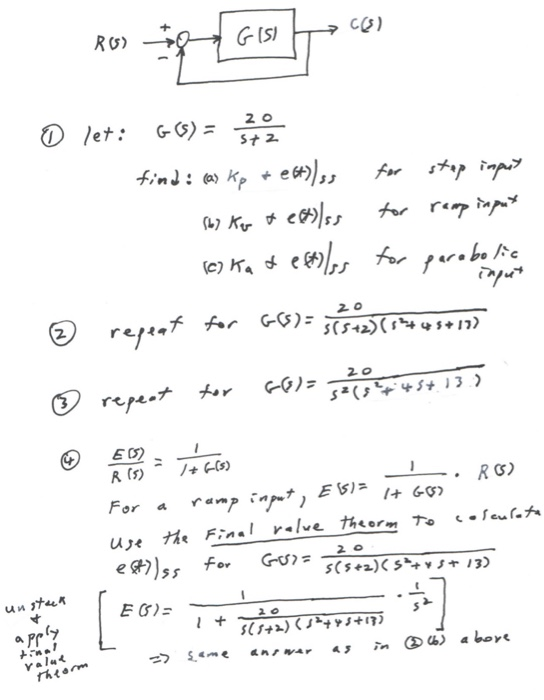 R(s) + − G(s) C(s)
① let: G(s) = 20/(s+2)
find: (a) Kp + e(t)|ss for step input
(b) Kv + e(t)|ss for ramp input
(c) Ka + e(t)|ss for parabolic
input
② repeat for G(s) = 20/(s(s+2)(s²+4s+13))
③ repeat for G(s) = 20/(s²(s²+4s+13))
④ E(s)/R(s) = 1/(1+G(s))
For a ramp input, E(s) = 1/(1+G(s)) · R(s)
Use the Final value theorm to calculate
e(t)|ss for G(s) = 20/(s(s+2)(s²+4s+13))
unstack
+
apply
final
value
theorm
[E(s) = 1/(1 + 20/(s(s+2)(s²+4s+13))) · 1/s²]
⇒ same answer as in ②(b) above